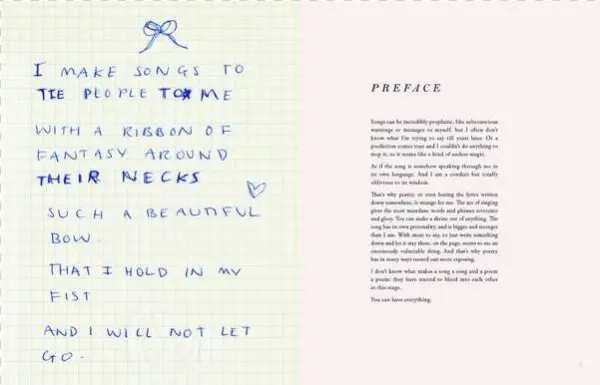 I MAKE SONGS TO
TIE PEOPLE TO ME
WITH A RIBBON OF
FANTASY AROUND
THEIR NECKS
SUCH A BEAUTIFUL
BOW.
THAT I HOLD IN MY
FIST
AND I WILL NOT LET
GO.
PREFACE
Songs can be incredibly prophetic, like subconscious
warnings or messages to myself, but I often don't
know what I'm trying to say till years later. Or a
prediction comes true and I couldn't do anything to
stop it, so it seems like a kind of useless magic.
As if the song is somehow speaking through me in
its own language. And I am a conduit but totally
oblivious to its wisdom.
That's why poetry, or even having the lyrics written
down somewhere, is strange for me. The act of singing
gives the most mundane words and phrases reverence
and glory. You can make a throne out of anything. The
song has its own personality; and is bigger and stronger
than I am. With more to say, to just write something
down and let it stay there, on the page, seems to me an
enormously vulnerable thing. And that's why poetry
has in many ways turned out more exposing.
I don't know what makes a song a song and a poem
a poem: they have started to bleed into each other
at this stage.
You can have everything.